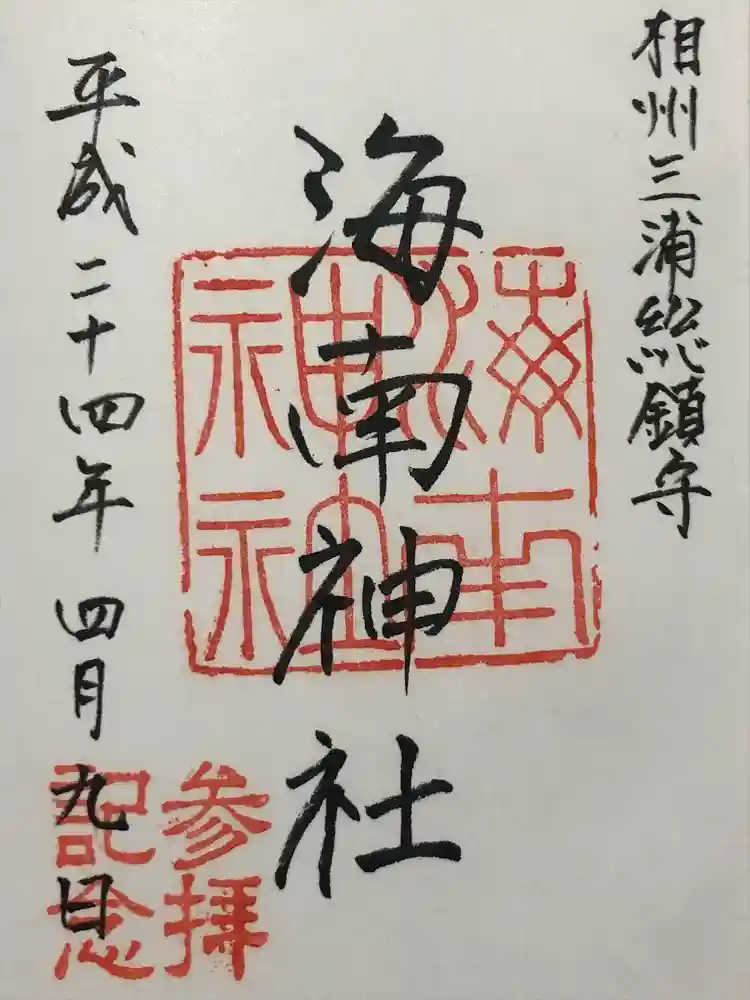 相州三浦総鎮守
海南神社
海南神社
平成二十四年四月九日
参拝記念